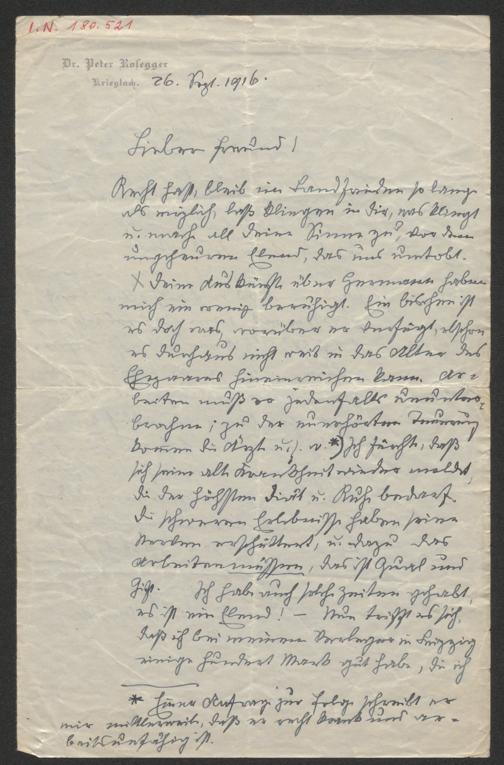 I.N. 180.521
Dr. Peter Rosegger
Krieglach. 26. Sept. 1916.
Lieber Freund!
Recht hast, bleib im Landfrieden so lange
als möglich, laß klingen in dir, was klingt
u. mach all deine Sinne zu, vor dem
ungeheuren Elend, das uns umtobt.
X Deine Auskünfte über Hermann haben
mich ein wenig beruhigt. Ein bischen ist
es doch was, worüber er verfügt, obschon
es durchaus nicht weit in das Alter des
Ehepaares hineinreichen kann. Ar-
beiten muß er jedenfalls ununter-
brochen; zu der unerhörten Teuerung
kommen die Ärzte u. s. w. *) Ich fürchte, daß
sich seine alte Krankheit wieder meldet,
die der höchsten Diät u. Ruhe bedarf.
Die schweren Erlebnisse haben seine
Nerven erschüttert, u. dazu das
Arbeitenmüssen, das ist Qual und
Gift. Ich hab auch solche Zeiten gehabt,
es ist ein Elend! – Nun trifft es sich,
daß ich bei meinem Verleger in Leipzig
einige hundert Mark gut habe, die ich
* Einer Anfrage zur Folge schreibt er
mir mittlerweile, daß er recht krank und ar-
beitsunfähig ist.